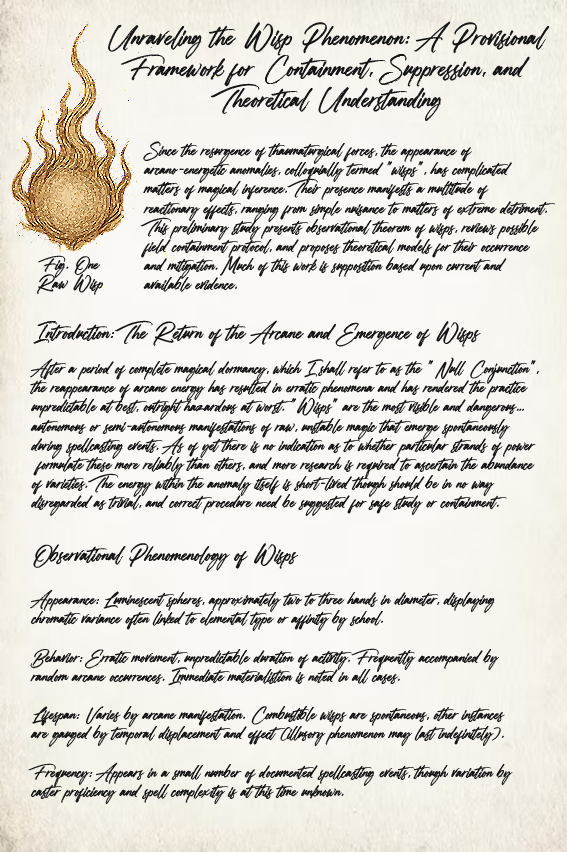 Unraveling the Wisp Phenomenon: A Provisional
Framework for Containment, Suppression, and
Theoretical Understanding
Since the resurgence of thaumaturgical forces, the appearance of
arcano-energetic anomalies, colloquially termed "wisps", has complicated
matters of magical inference. Their presence manifests a multitude of
reactionary effects, ranging from simple nuisance to matters of extreme detriment.
This preliminary study presents observational theorem of wisps, reviews possible
field containment protocol, and proposes theoretical models for their occurrence
and mitigation. Much of this work is supposition based upon current and
available evidence.
Fig. One
Raw Wisp
Introduction: The Return of the Arcane and Emergence of Wisps
After a period of complete magical dormancy, which I shall refer to as the "Null Conjunction",
the reappearance of arcane energy has resulted in erratic phenomena and has rendered the practice
unpredictable at best, outright hazardous at worst. "Wisps" are the most visible and dangerous...
autonomous or semi-autonomous manifestations of raw, unstable magic that emerge spontaneously
during spellcasting events. As of yet there is no indication as to whether particular strands of power
formulate these more reliably than others, and more research is required to ascertain the abundance
of varieties. The energy within the anomaly itself is short-lived though should be in no way
disregarded as trivial, and correct procedure need be suggested for safe study or containment.
Observational Phenomenology of Wisps
Appearance: Luminescent spheres, approximately two to three hands in diameter, displaying
chromatic variance often linked to elemental type or affinity by school.
Behavior: Erratic movement, unpredictable duration of activity. Frequently accompanied by
random arcane occurrences. Immediate materialistion is noted in all cases.
Lifespan: Varies by arcane manifestation. Combustible wisps are spontaneous, other instances
are gauged by temporal displacement and effect (illusory phenomenon may last indefinitely).
Frequency: Appears in a small number of documented spellcasting events, though variation by
caster proficiency and spell complexity is at this time unknown.